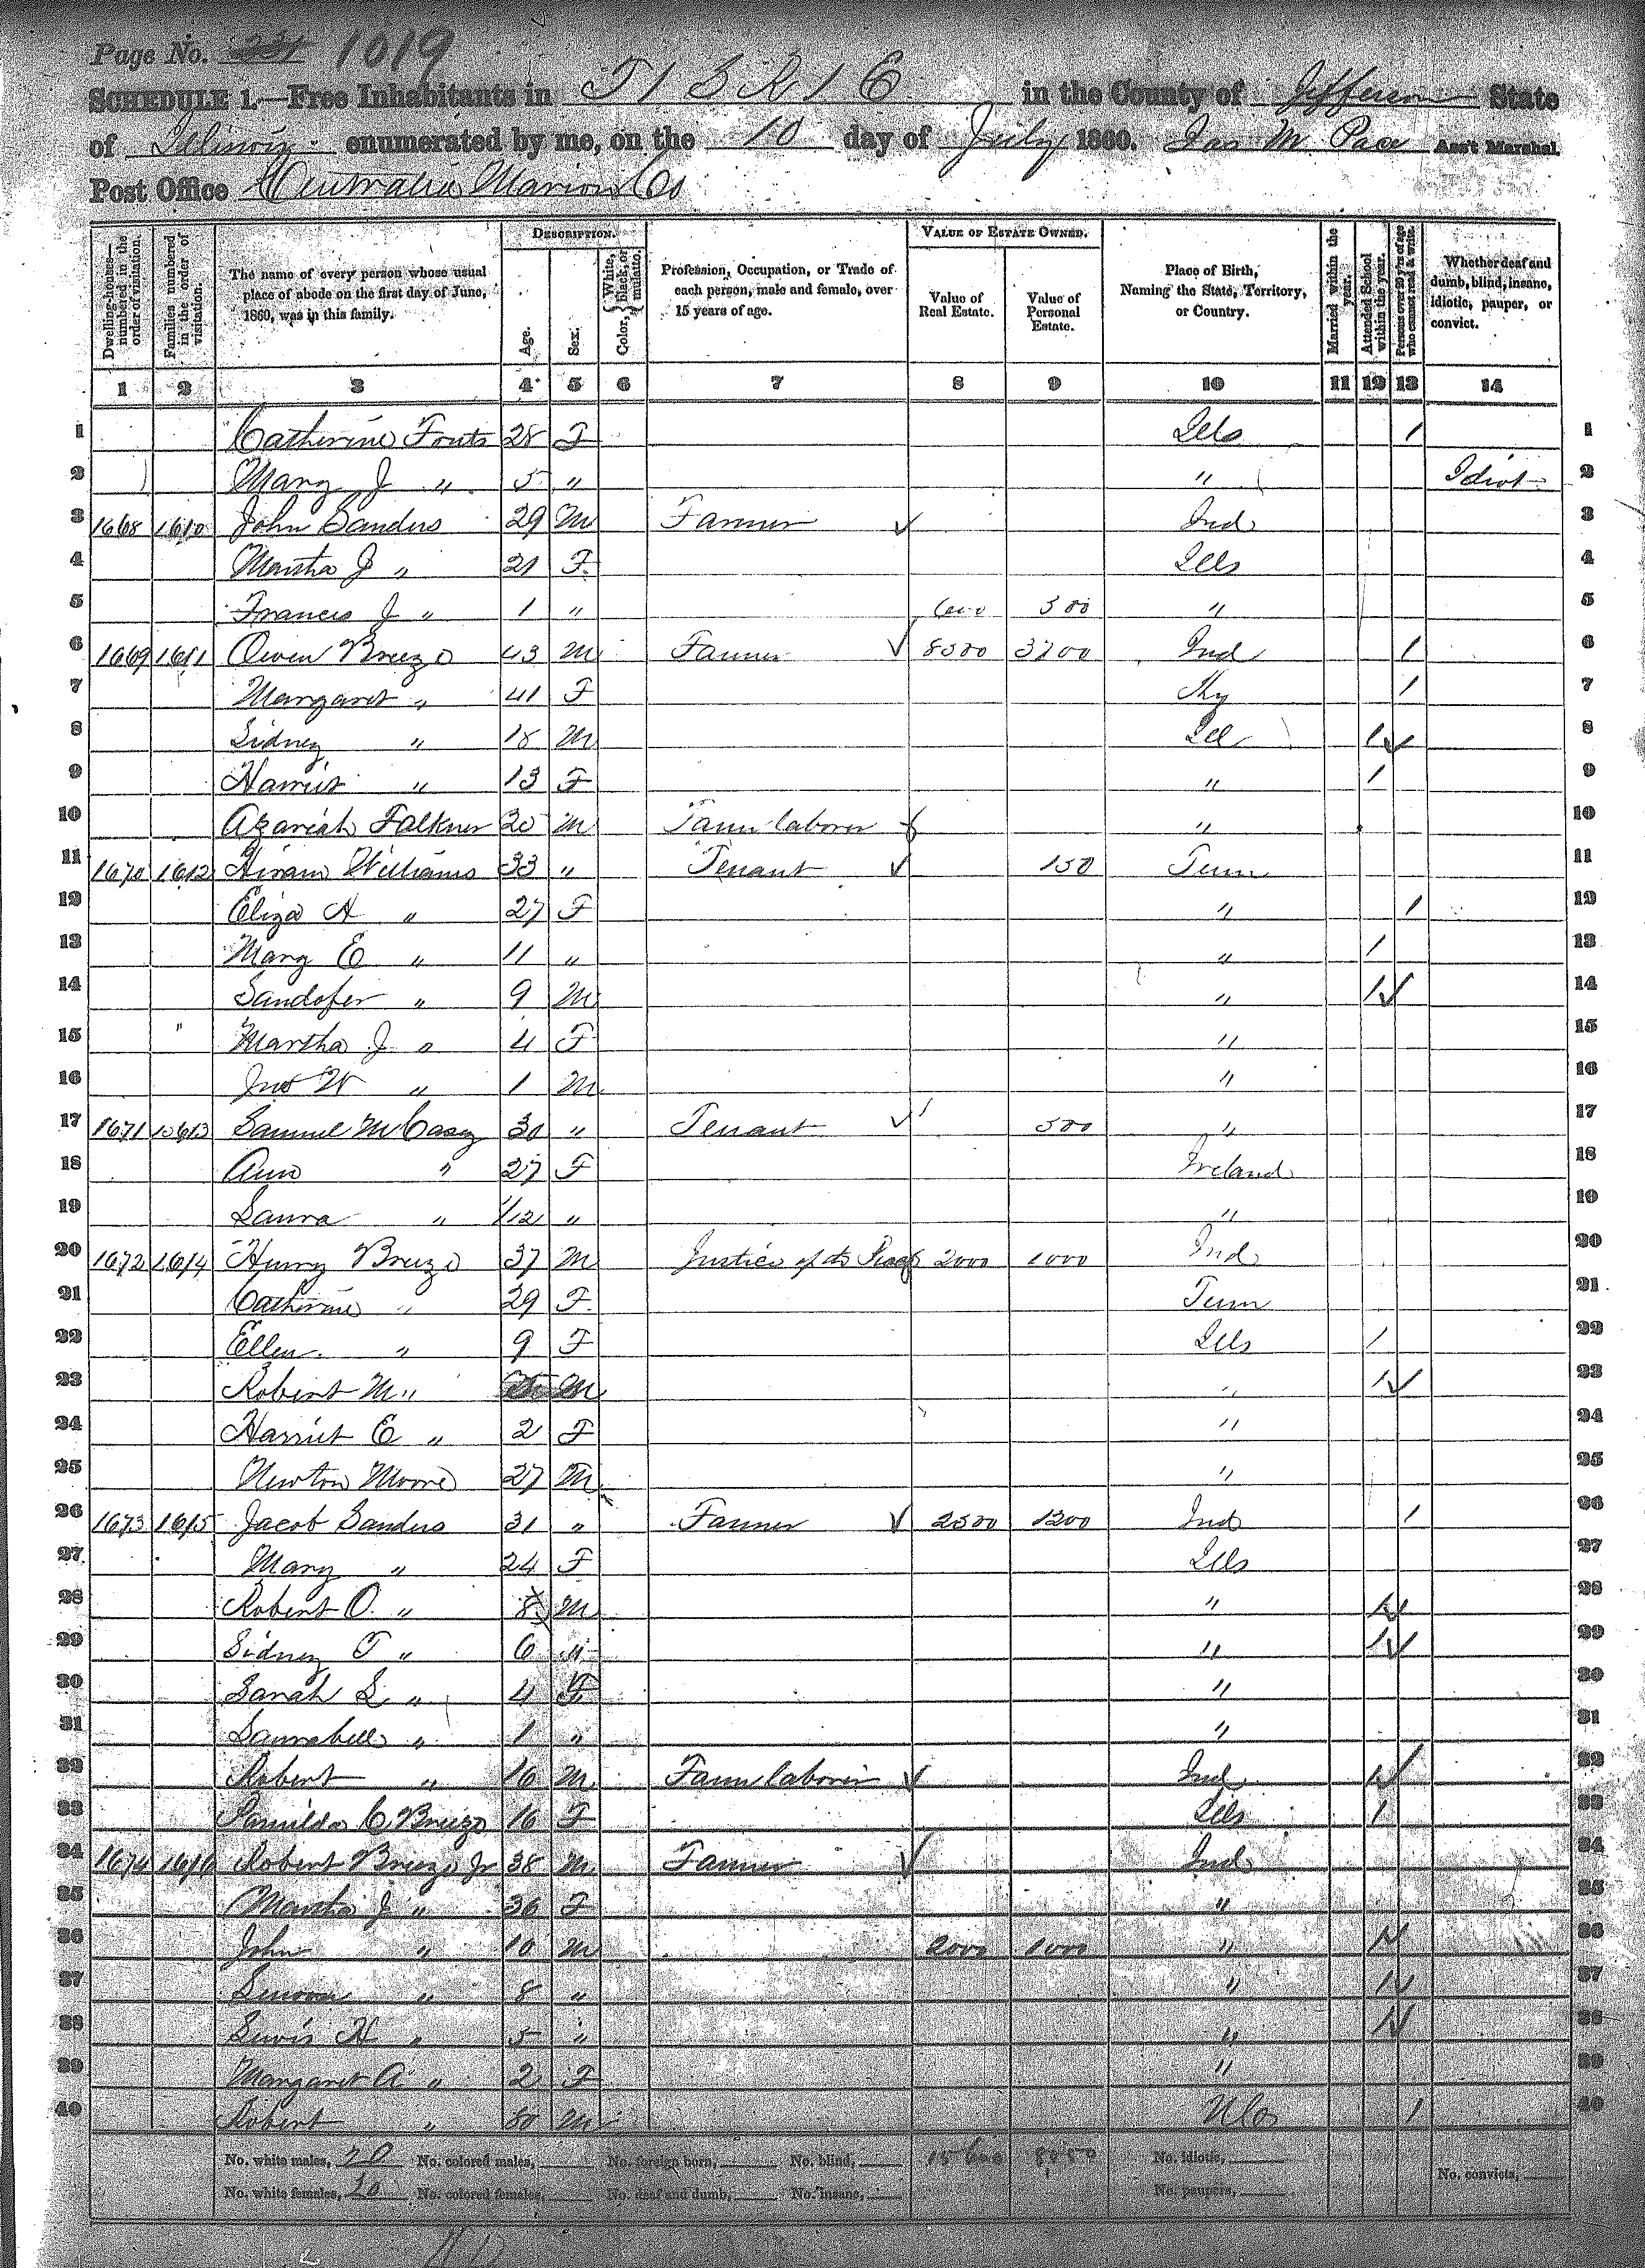 Page No. 231 1019
SCHEDULE 1.—Free Inhabitants in T 1 S R 1 E in the County of Jefferson State
of Illinois enumerated by me, on the 10 day of July 1860. Jas M. Pace Ass't Marshal.
Post Office Centralia Marion Co
Dwelling-houses—numbered in the order of visitation. Families numbered in the order of visitation. The name of every person whose usual place of abode on the first day of June, 1860, was in this family. DESCRIPTION. Age. Sex. Color, White, black, or mulatto. Profession, Occupation, or Trade of each person, male and female, over 15 years of age. VALUE OF ESTATE OWNED. Value of Real Estate. Value of Personal Estate. Place of Birth, Naming the State, Territory, or Country. Married within the year. Attended School within the year. Persons over 20 y'rs of age who cannot read & write. Whether deaf and dumb, blind, insane, idiotic, pauper, or convict.
1 2 3 4 5 6 7 8 9 10 11 12 13 14
1 Catherine Fouts 28 F Ills / 1
2 Mary J " 5 " " Idiot 2
3 1668 1610 John Sanders 29 M Farmer Ind 3
4 Martha J " 21 F Ills 4
5 Francis J " 1 " 600 300 " 5
6 1669 1611 Owen Breeze 43 M Farmer 8500 3700 Ind / 6
7 Margaret " 41 F Ky / 7
8 Sidney " 18 M Ill / 8
9 Harriet " 13 F " / 9
10 Azariah Falkner 20 M Farm laborer " 10
11 1670 1612 Hiram Williams 33 " Tenant 150 Tenn 11
12 Eliza A " 27 F " / 12
13 Mary E " 11 " " / 13
14 Sandofer " 9 M " / 14
15 Martha J " 4 F " 15
16 Jno W " 1 M " 16
17 1671 1613 Samuel McCasy 30 " Tenant 500 " 17
18 Ann " 27 F Ireland 18
19 Laura " 1/12 " " 19
20 1672 1614 Henry Breeze 37 M Justice of the Peace 2000 1000 Ind 20
21 Catherine " 29 F Tenn 21
22 Ellen " 9 F Ills / 22
23 Robert M " M " / 23
24 Harriet E " 2 F " 24
25 Newton Moore 27 M " 25
26 1673 1615 Jacob Sanders 31 " Farmer 2500 1200 Ind / 26
27 Mary " 24 F Ills 27
28 Robert O. " 8 M " / 28
29 Sidney T " 6 " " / 29
30 Sarah L " 4 F " 30
31 Laurabell " 1 " " 31
32 Robert " 16 M Farm laborer Ind / 32
33 C Breeze 16 F Ills / 33
34 1674 1616 Robert Breeze Jr 38 M Farmer Ind 34
35 Martha J " 36 F " 35
36 John " 10 M 2000 1000 " / 36
37 " 8 " " / 37
38 Lewis H " 5 " " / 38
39 Margaret A " 2 F " 39
40 Robert " 80 M / 40
No. white males, 20 No. colored males, No. foreign born, No. blind, 15600 8850 No. idiotic,
No. white females, 20 No. colored females, No. deaf and dumb, No. insane, No. paupers, No. convicts,